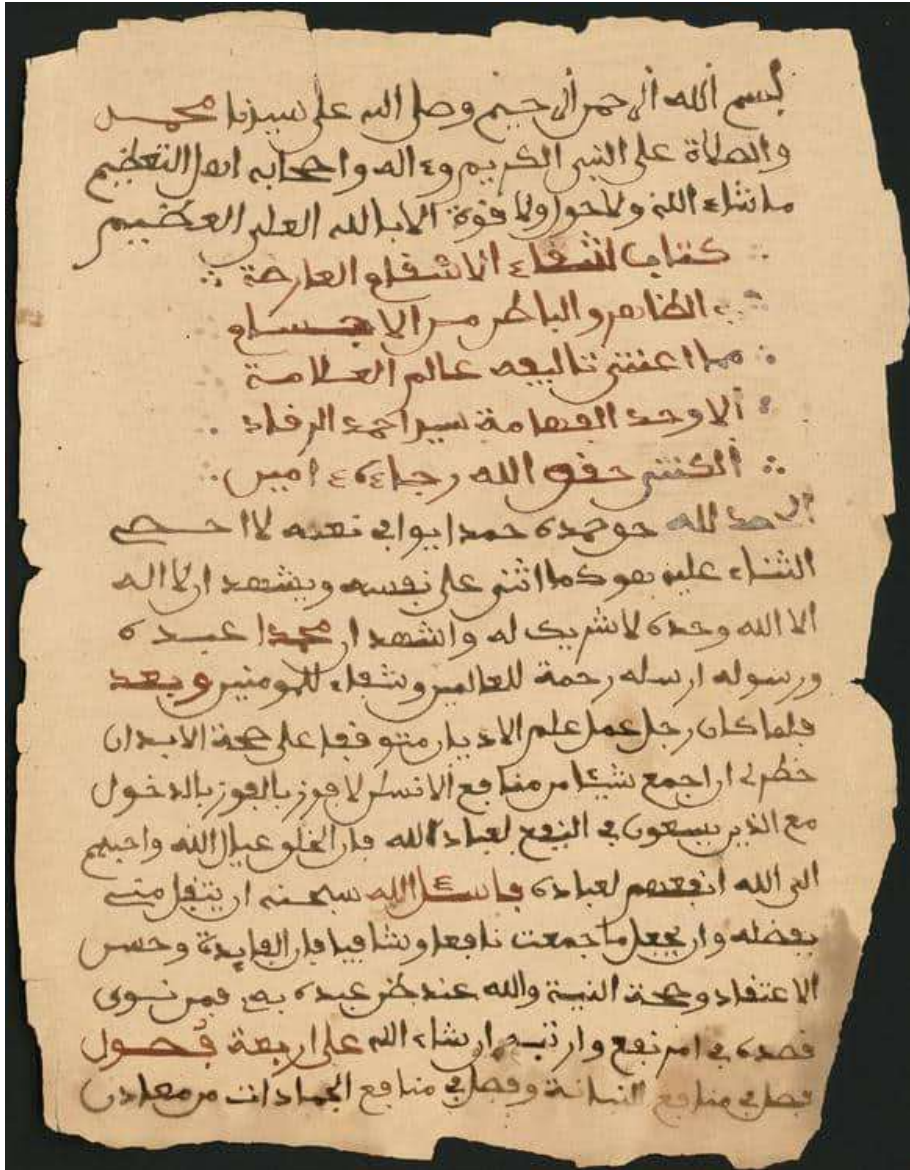 بسم الله الرحمن الرحيم وصل الله على سيدنا محمد
والصلاة على النبي الكريم وءاله واصحابه اهل التعظيم
ما شاء الله ولا حول ولا قوة الا بالله العلي العظيم
كتاب شفاء الاسقام العارضة
الظاهر والباطن من الاجسام
مما اعتنى تاليفه عالم العلامة
الاوحد الفهامة سيد احمد الرقاد
الكنتي حقق الله رجاءه ءامين
الحمد لله حق حمده حمدا يوافي نعمه لا احصى
الثناء عليه هو كما اثنى على نفسه ويشهد ان لا اله
الا الله وحده لا شريك له واشهد ان محمدا عبده
ورسوله ارسله رحمة للعالمين وشفاء للمومنين وبعد
فلما كان رجل عمل علم الاديان متوقفا على صحة الابدان
خطر لي ان اجمع شيئا من منافع الانسان لافوز بالفوز بالدخول
مع الذين يسعون في النفع لعباد الله فان الخلق عيال الله واحبهم
الى الله انفعهم لعباده فاسئل الله سبحنه ان يتقبل منى
بفضله وان يجعل ما جمعت نافعا وشافيا فان الفايدة وحسن
الاعتقاد وصحة النية والله عند ظن عبده به فمن نوى
قصده في امر نفع وارتبه ان شاء الله على اربعة فصول
فصل في منافع النباتة وفصل في منافع الجمادات من معادن